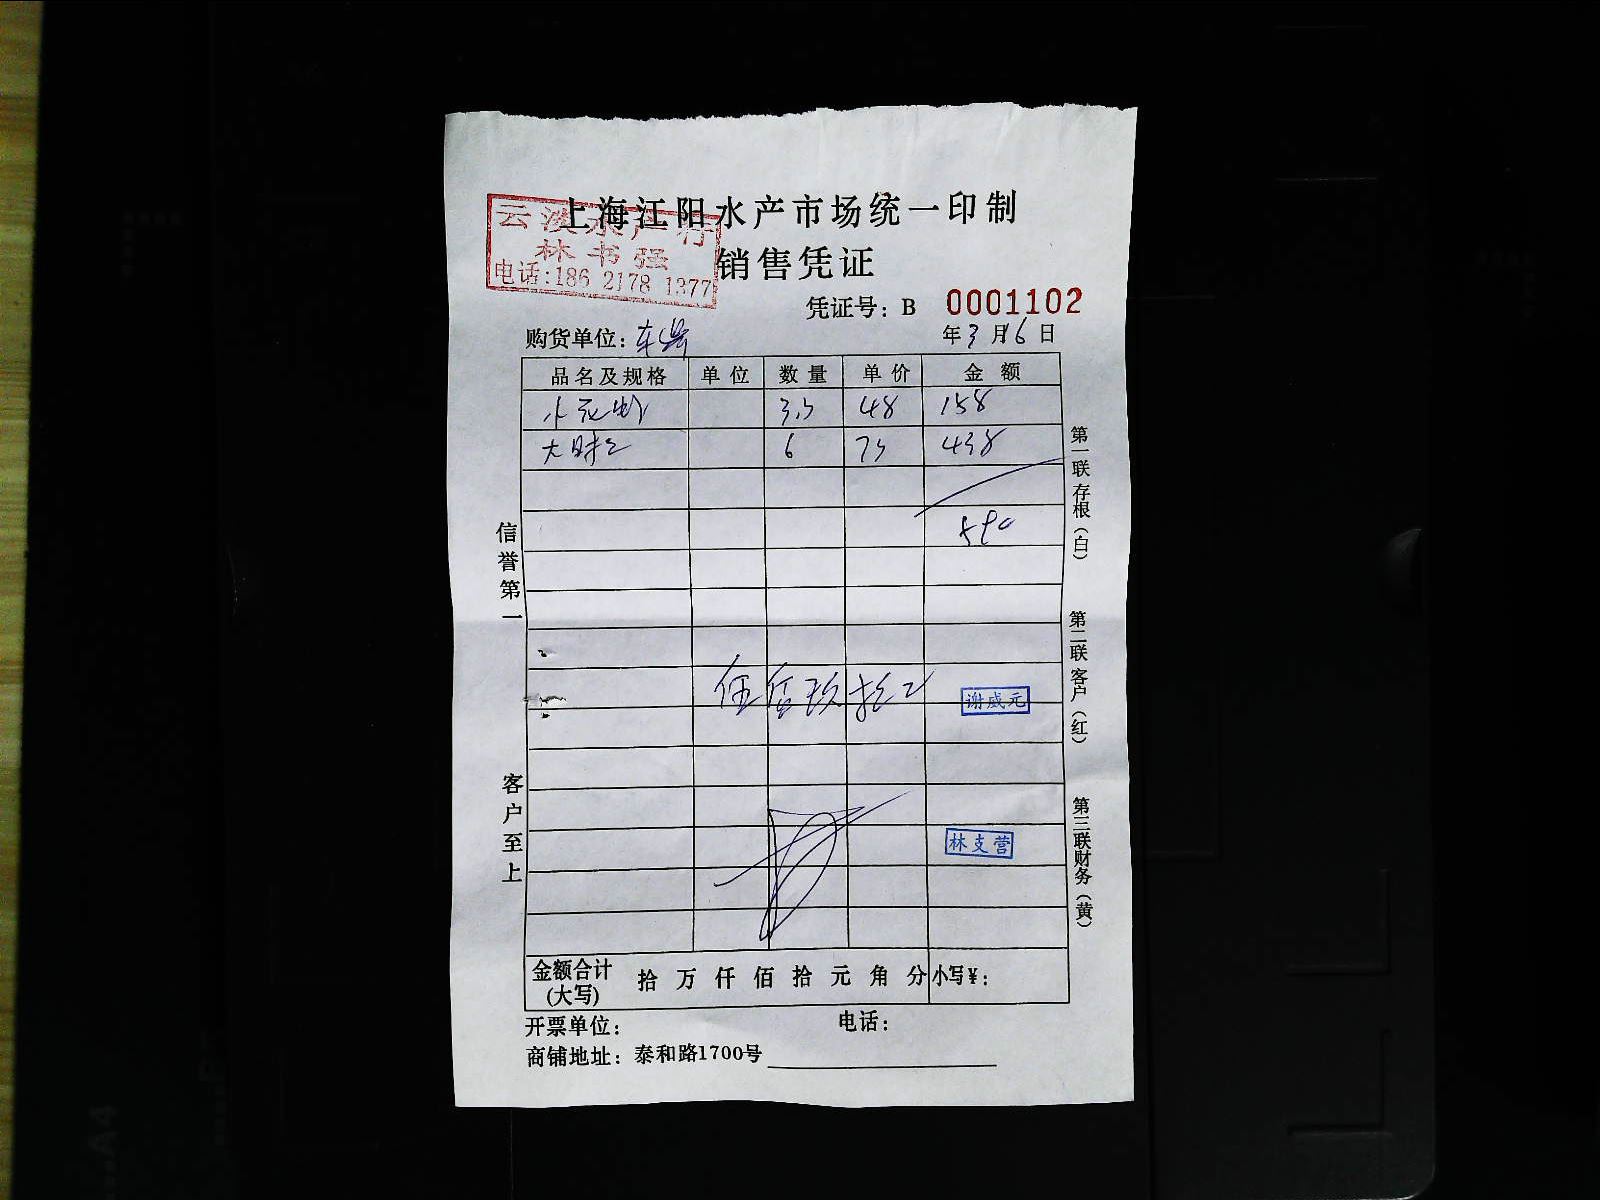 上海江阳水产市场统一印制
云淡水产行
林书强
电话:186 2178 1377
销售凭证
凭证号: B 0001102
购货单位:
年3月16日
品名及规格 单位 数量 单价 金额
3.3 48 158
6 73 438
590
伍佰玖拾元
谢威元
林支营
信誉第一
客户至上
第一联存根(白)
第二联客户(红)
第三联财务(黄)
金额合计(大写) 拾 万 仟 佰 拾 元 角 分 小写¥:
开票单位: 电话:
商铺地址: 泰和路1700号